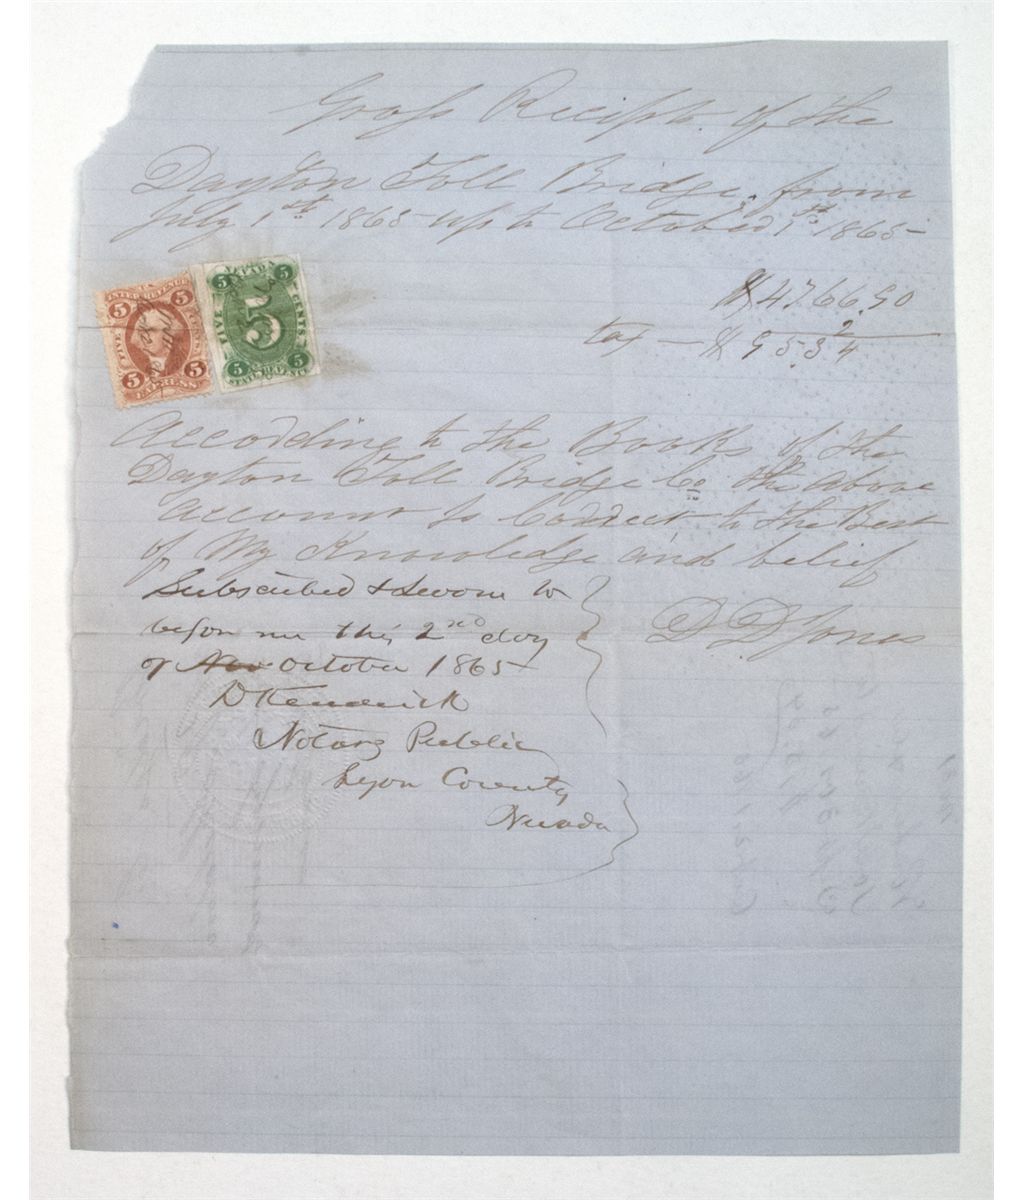 Gross Recipts of the
Dayton Toll Bridge from
July 1st 1865 up to October 1st 1865
$4766.90
2
tax — $ 95 34
5 U.S. 5
INTER. REVENUE
FIVE CENTS
5 EXPRESS 5
5 NEVADA 5
FIVE 5 CENTS
5 STATE REVENUE 5
According to the Books of the
Dayton Toll Bridge Co the Above
Account is Correct to the Best
of My Knowledge and belief
D. D. Jones
Subscribed & Sworn to
before me this 2nd day
of Nov October 1865
D Kendrick
Notary Public
Lyon County
Nevada